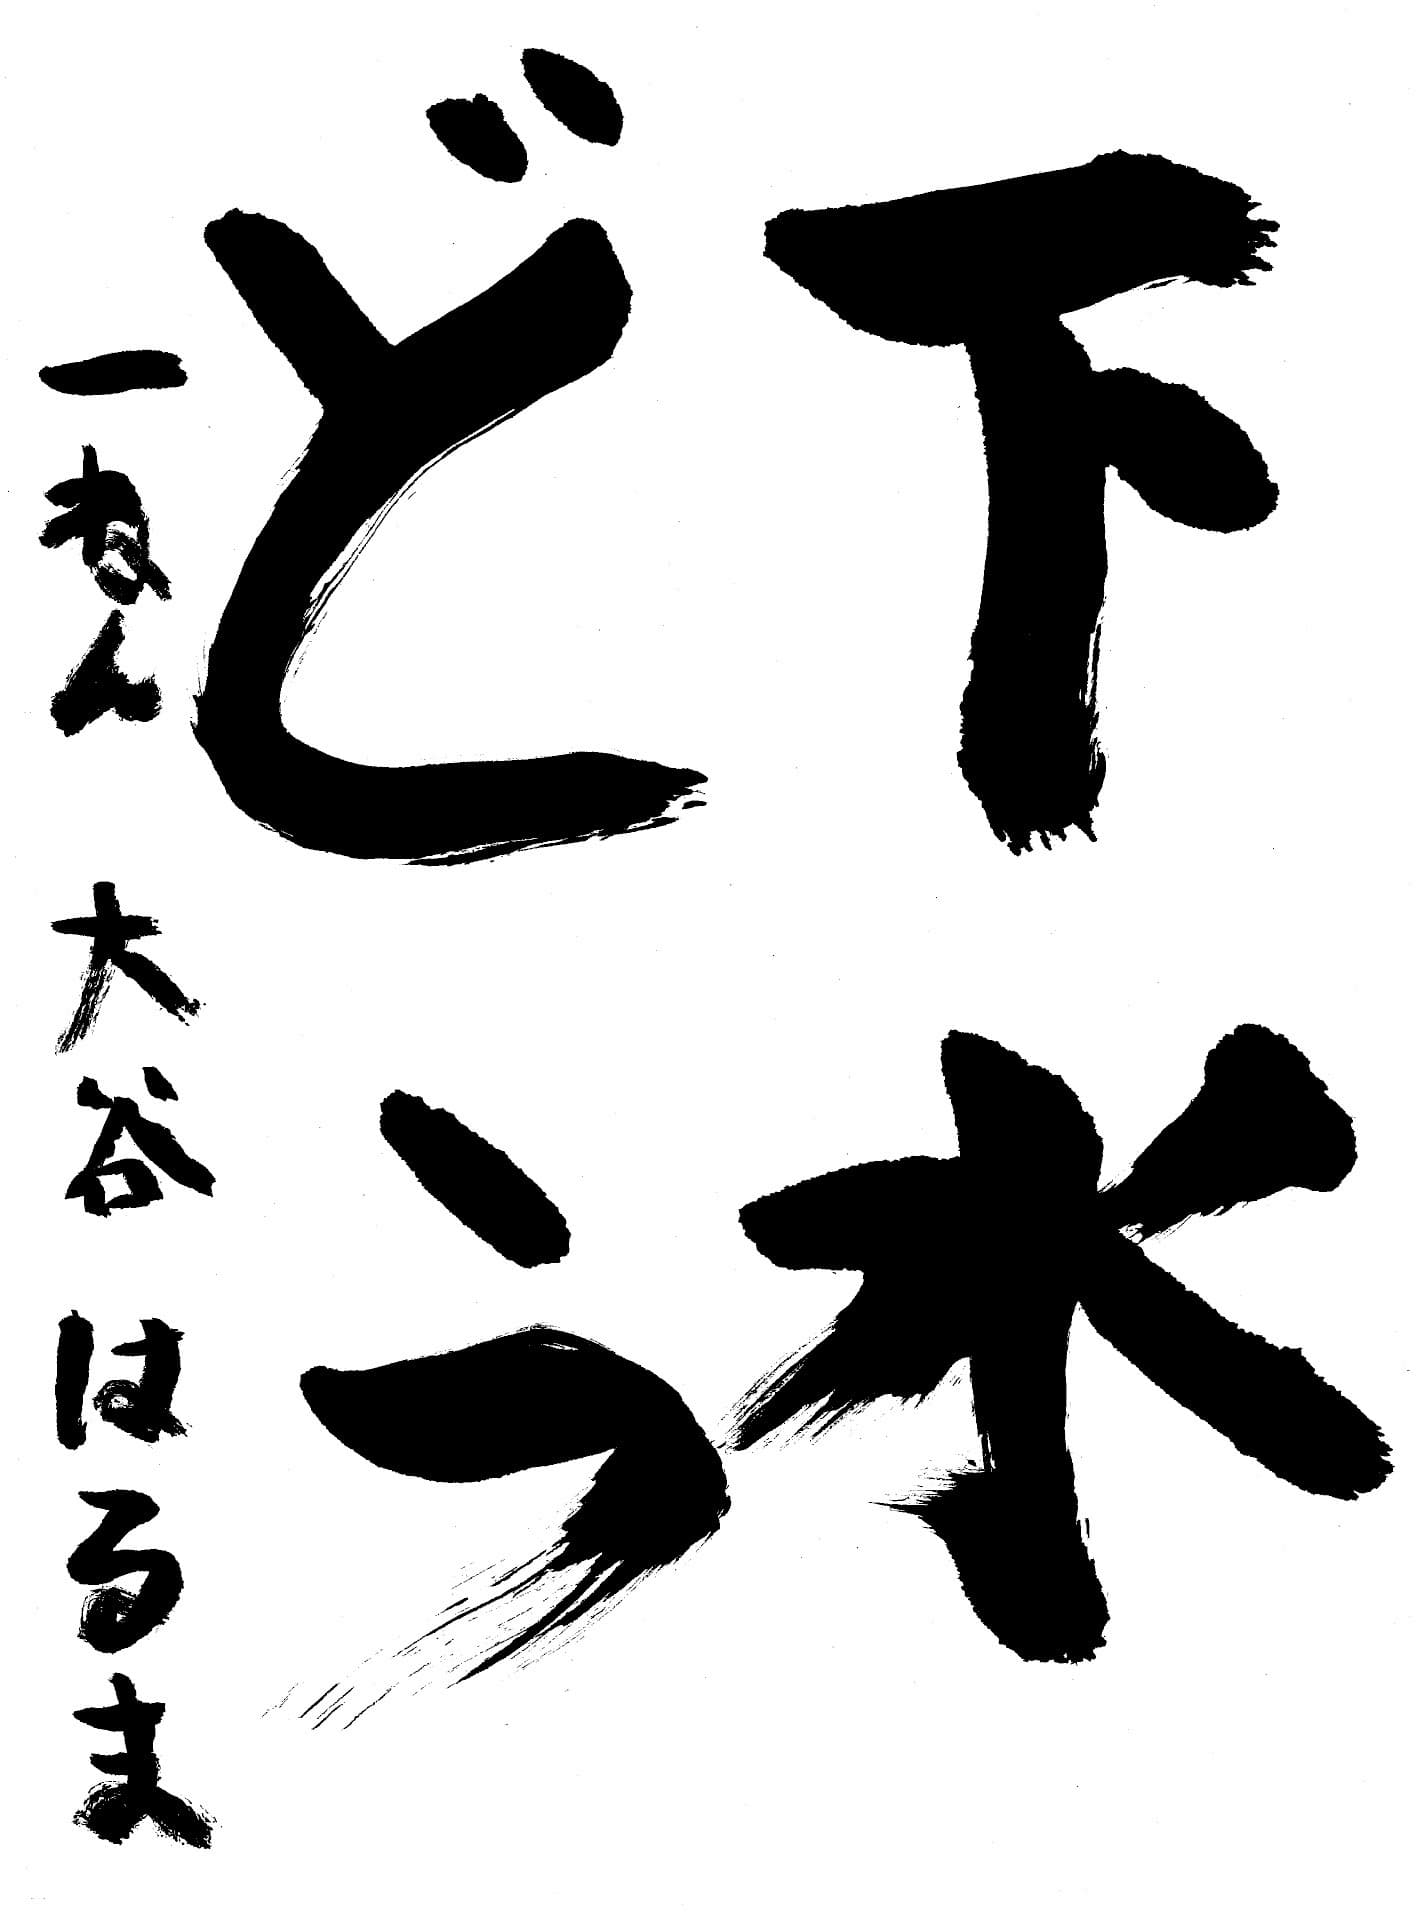 下水
どう
一ねん 大谷 はるま